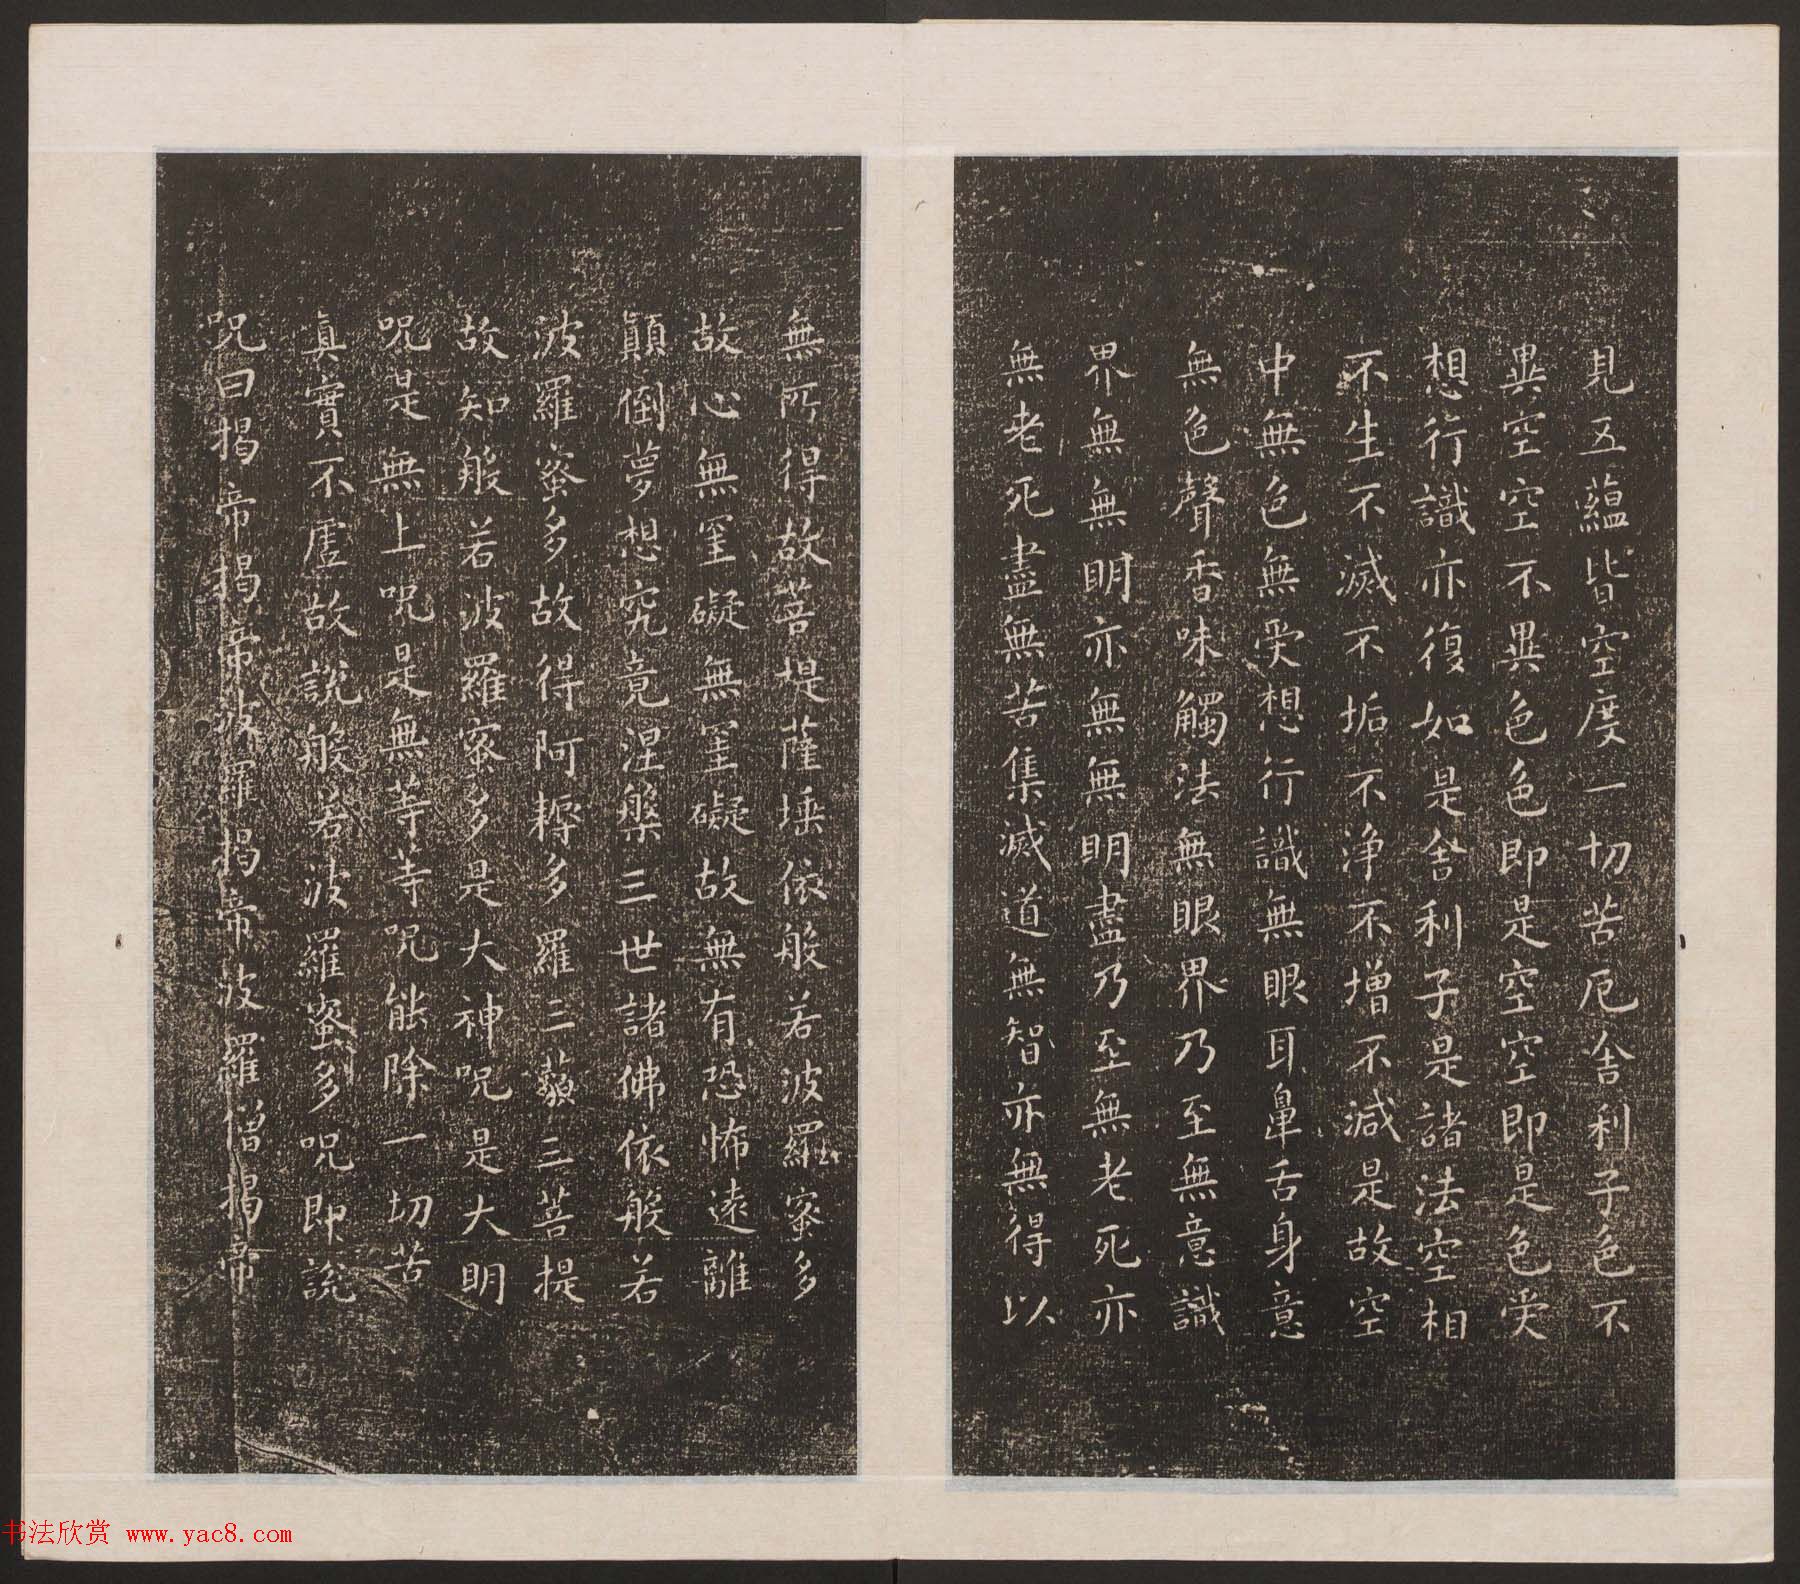 見五蘊皆空度一切苦厄舍利子色不
異空空不異色色即是空空即是色受
想行識亦復如是舍利子是諸法空相
不生不滅不垢不淨不增不減是故空
中無色無受想行識無眼耳鼻舌身意
無色聲香味觸法無眼界乃至無意識
界無無明亦無無明盡乃至無老死亦
無老死盡無苦集滅道無智亦無得以
無所得故菩堤薩埵依般若波羅蜜多
故心無罣礙無罣礙故無有恐怖遠離
顛倒夢想究竟涅槃三世諸佛依般若
波羅蜜多故得阿耨多羅三藐三菩提
故知般若波羅蜜多是大神咒是大明
咒是無上咒是無等等咒能除一切苦
真實不虛故說般若波羅蜜多咒即說
咒曰揭帝揭帝波羅揭帝波羅僧揭帝
书法欣赏 www.yac8.com